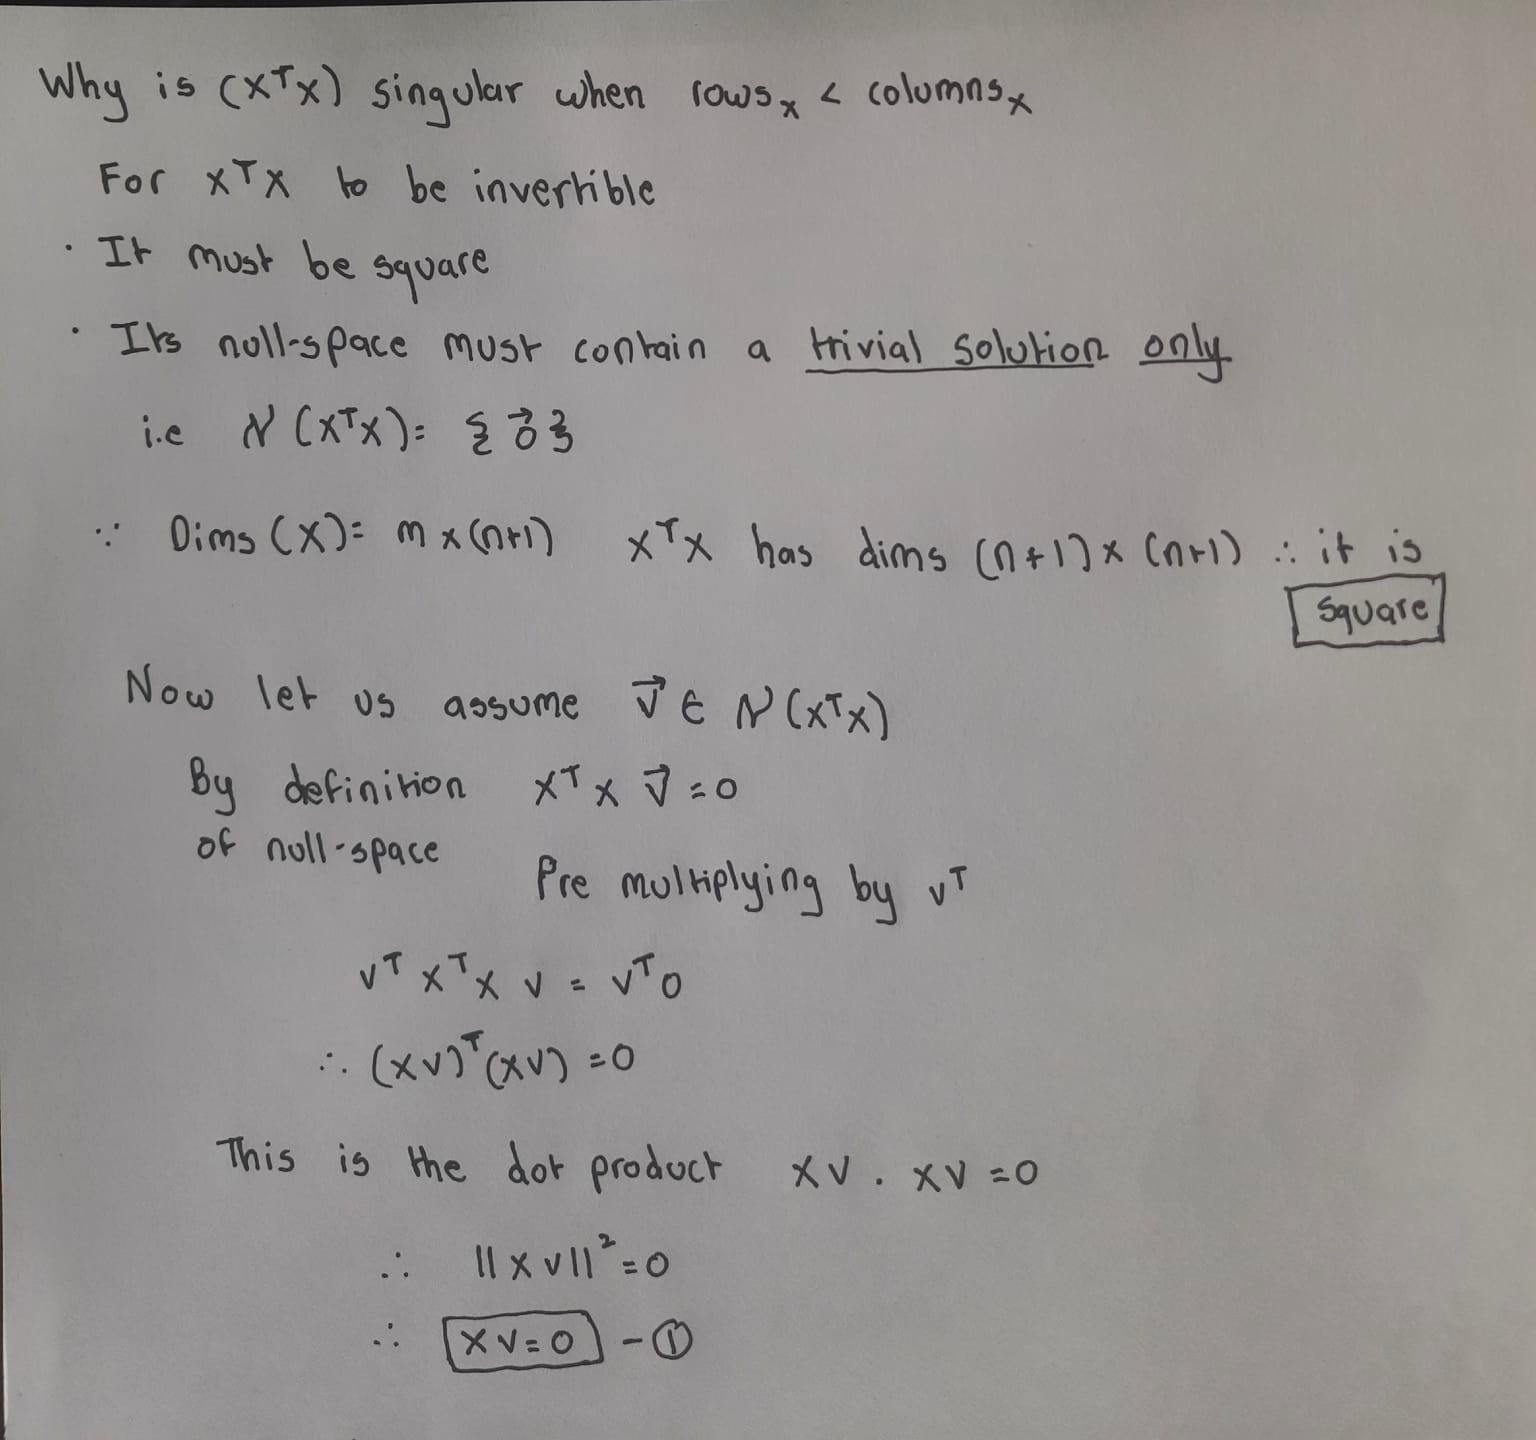 Why is (XᵀX) singular when rowsₓ < columnsₓ
For XᵀX to be invertible
· It must be square
· Its null-space must contain a trivial solution only
i.e N(XᵀX)= {0⃗}
∵ Dims (X)= m x (n+1) XᵀX has dims (n+1) x (n+1) ∴ it is
square
Now let us assume v⃗ ∈ N(XᵀX)
By definition XᵀX v⃗ =0
of null-space
Pre multiplying by vᵀ
vᵀXᵀX v = vᵀ0
∴ (Xv)ᵀ(Xv) =0
This is the dot product Xv . Xv =0
∴ ||Xv||²=0
∴ Xv=0 -①